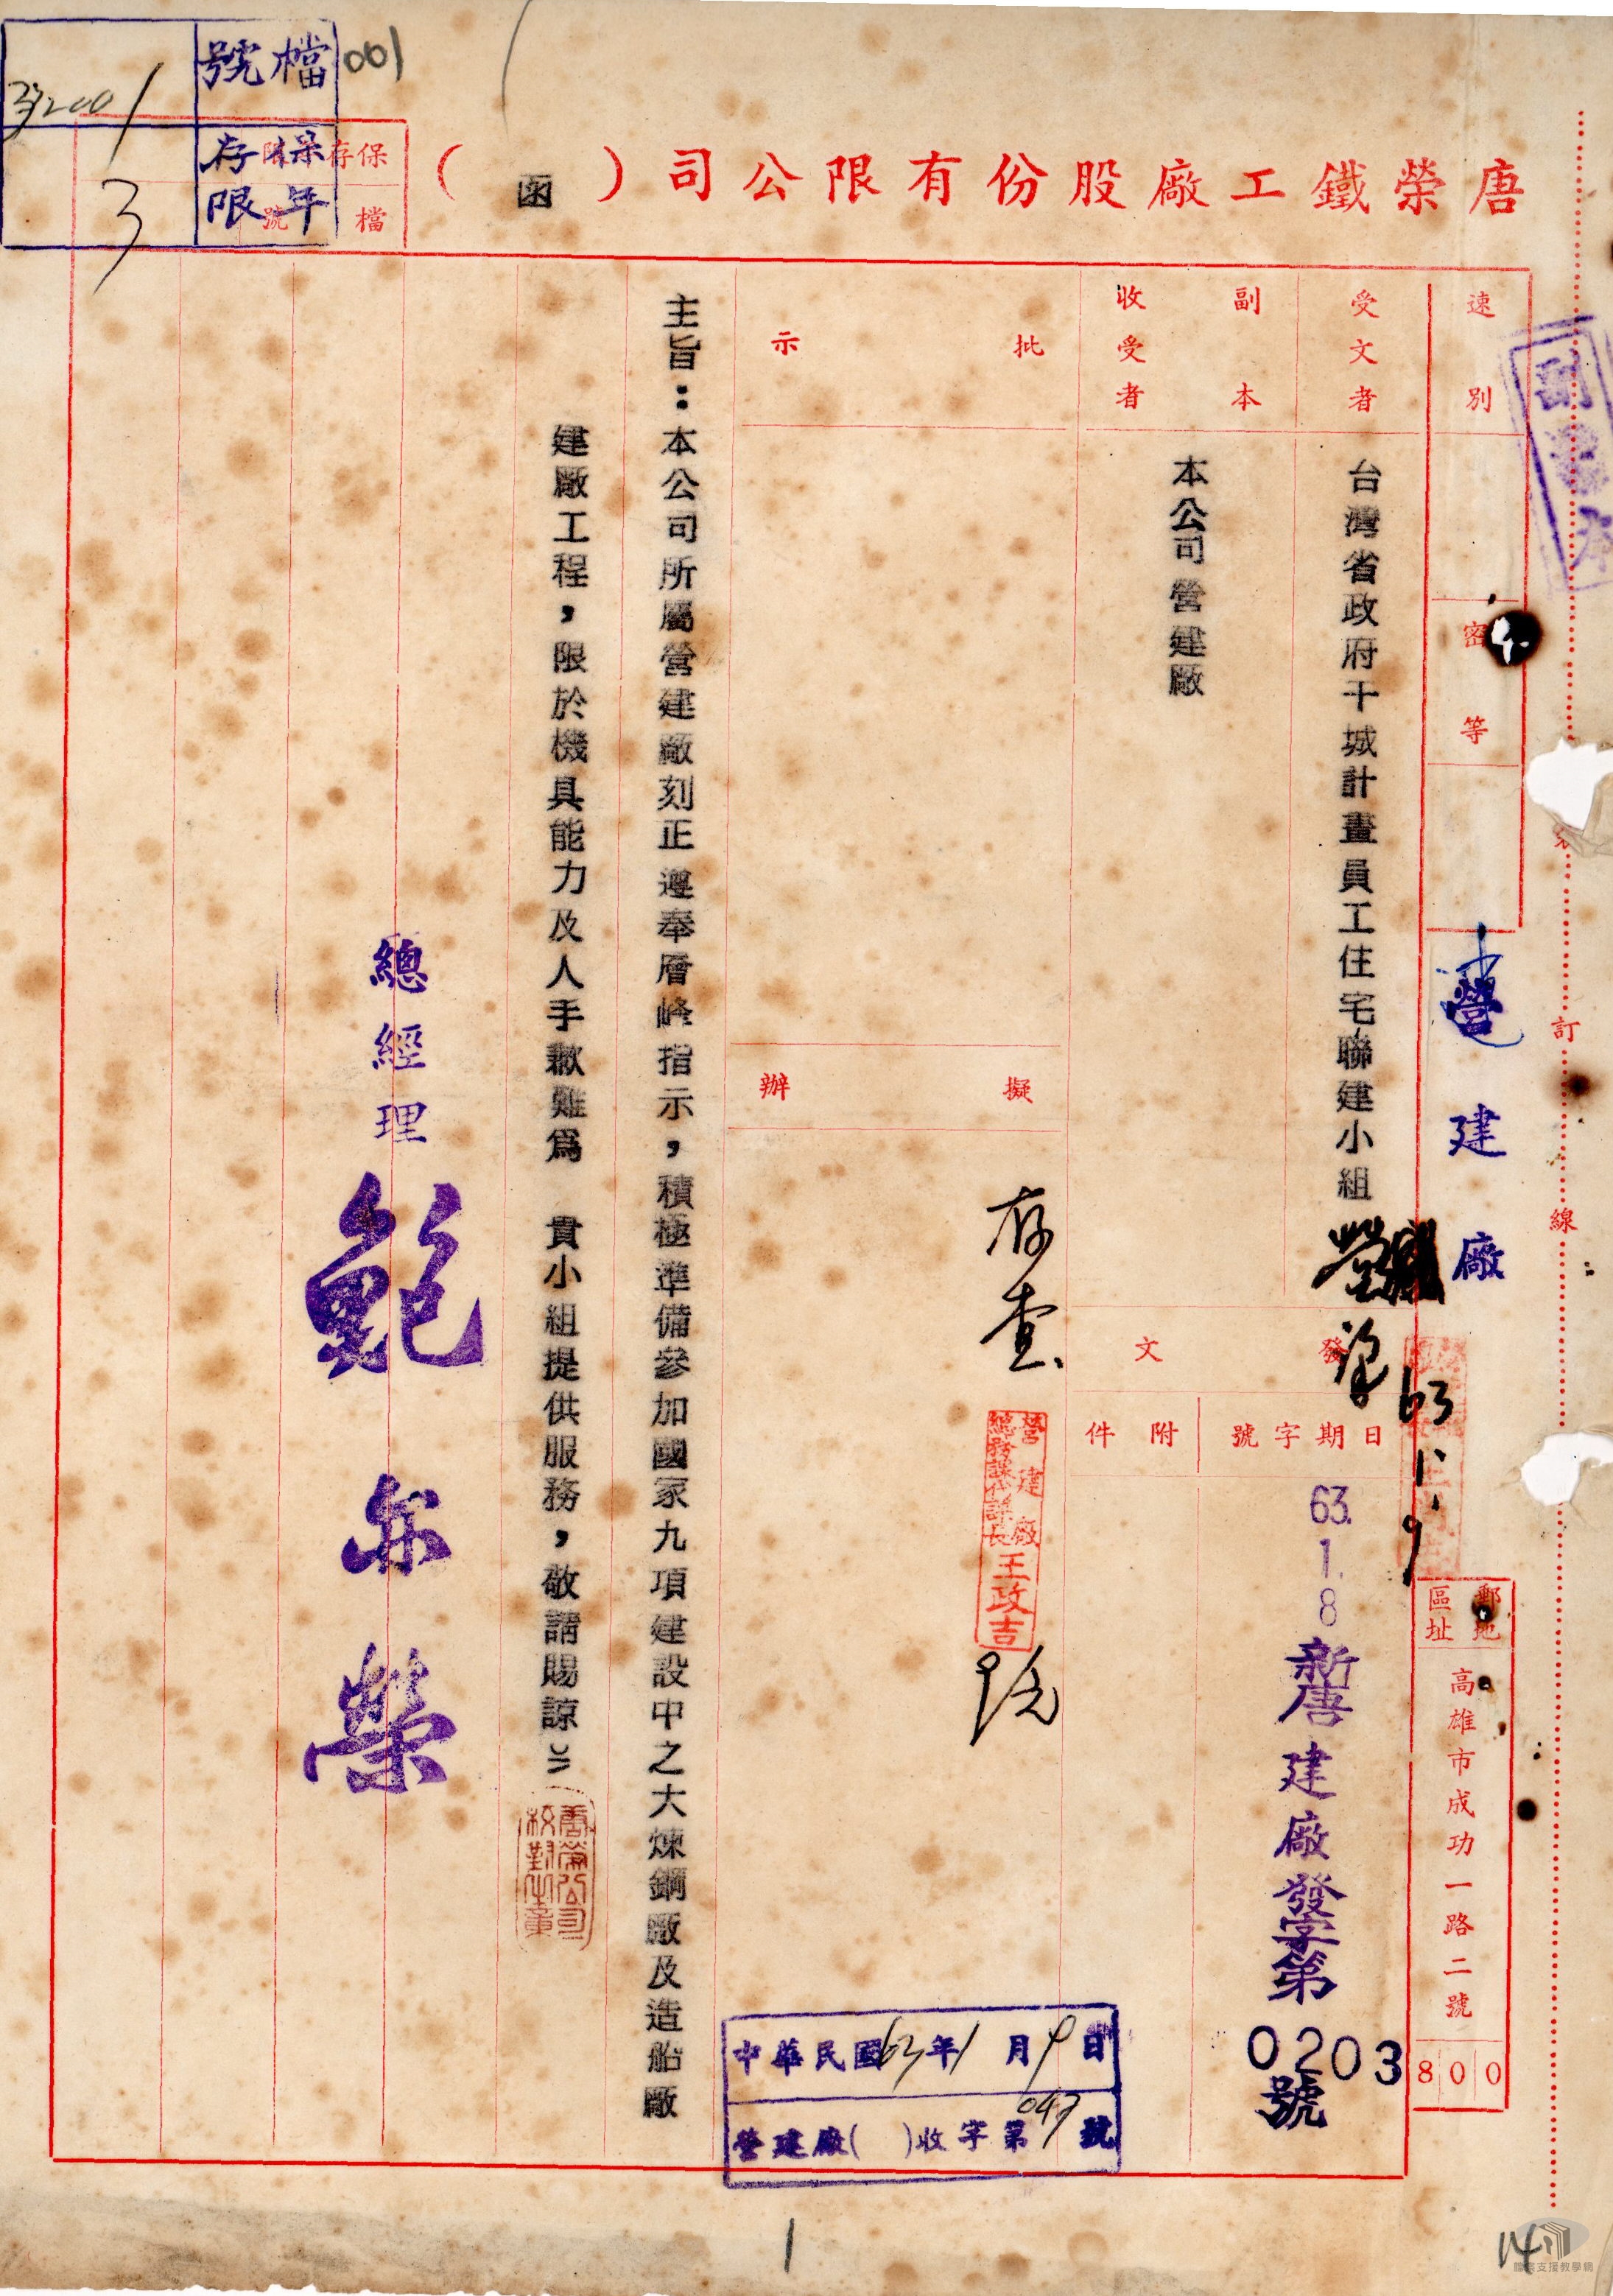 檔號
001
保存年限
3
保存
檔號
唐榮鐵工廠股份有限公司（函）
副本
速別
密等
訂
線
營建廠
受文者
台灣省政府干城計畫員工住宅聯建小組
副本收受者
本公司營建廠
發文
日期字號
附件
63.1.8
新唐建廠發字第0203號
63.1.9
郵區
地址
高雄市成功一路二號
800
批示
擬辦
存查
營建廠
總務課代課長
王政吉
中華民國63年1月9日
營建廠（ ）收字第047號
主旨：本公司所屬營建廠刻正遵奉層峰指示，積極準備參加國家九項建設中之大煉鋼廠及造船廠
建廠工程，限於機具能力及人手歉難為 貴小組提供服務，敬請賜諒
唐榮公司
校對之章
總經理 鮑亦榮
1
14
檔案支援教學網